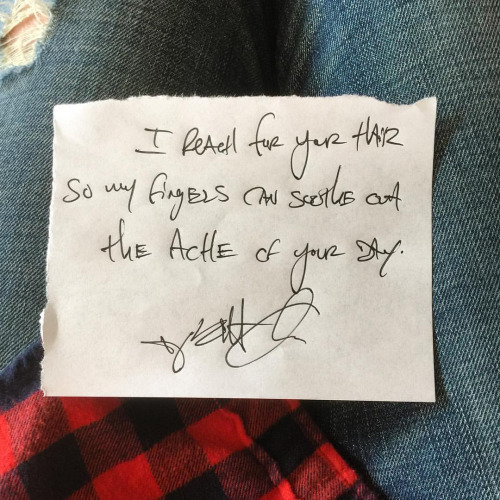 I REACH for your HAIR
So my fingers CAN SOOTHE out
the ACHE of your DAY.